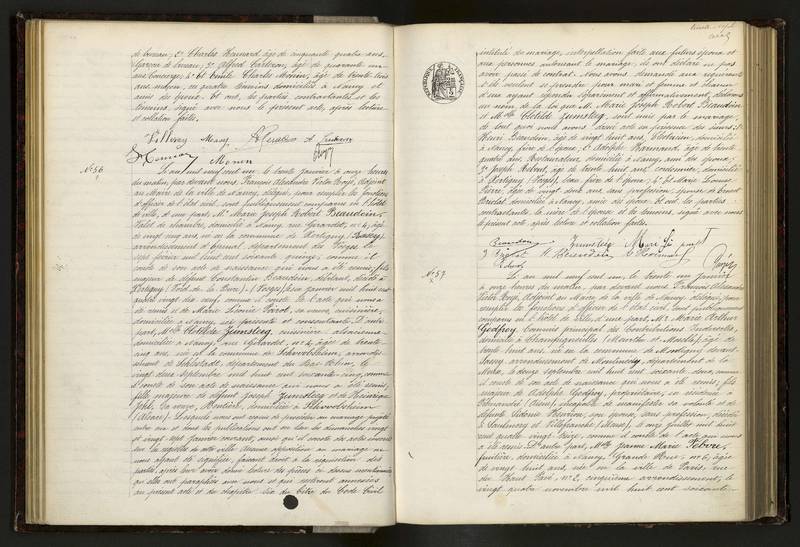 de bureau; 2º Charles Hennard, âgé de cinquante quatre ans,
Garçon de bureau; 3º Alfred âgé de quarante un
ans, Concierge; 4º et Emile Charles Monin, âgé de trente trois
ans, maçon, ces quatre témoins domiciliés à Nancy et
amis des époux. Et ont, les parties contractantes et les
témoins, signé avec nous le présent acte, après lecture
et collation faites.
Monin
Nº 56
L'an mil neuf cent un, le trente janvier à onze heures
du matin, par devant nous, François Alexandre Victor Boyé, adjoint
au Maire de la ville de Nancy, délégué pour remplir les fonctions
d'officier de l'état civil, sont publiquement comparus en l'Hôtel
de ville, d'une part, Mr Marie Joseph Robert Beaudein,
Valet de chambre, domicilié à Nancy, rue Girardet, nº 6, âgé
de vingt cinq ans, né en la commune de Hortigny
arrondissement d'Epinal, département des Vosges, le
sept février mil huit cent soixante quinze, comme il
conste de son acte de naissance qui nous a été remis; fils
majeur de défunt Constantin Beaudein, débitant, décédé à
(Vosges), le janvier mil huit cent
quatre vingt dix neuf, comme il conste de l'acte qui nous a
été remis et de Marie Léonie sa veuve, cuisinière,
domiciliée à Nancy, ici présente et consentante. D'autre
part, Melle Clotilde Zumsteeg, cuisinière alsacienne,
domiciliée à Nancy, rue Girardet, nº 6, âgée de trente
cinq ans, née en la commune de Schwobsheim, arrondis-
sement de Schlestadt, département du Bas-Rhin, le
vingt deux septembre mil huit cent soixante-cinq, comme
il conste de son acte de naissance qui nous a été remis;
fille majeure de défunt Joseph Zumsteeg et de
sa veuve, Rentière, domiciliée à Schwobsheim
(Alsace). Lesquels nous ont requis de procéder au mariage projeté
entre eux et dont les publications ont eu lieu les dimanches vingt
et vingt-sept janvier courant, ainsi qu'il conste des actes inscrits
sur les registres de cette ville. Aucune opposition au mariage ne
nous ayant été signifiée, faisant droit à la réquisition des
parties, après leur avoir donné lecture des pièces ci-dessus mentionnées
qu'elles ont paraphées avec nous et qui resteront annexées
au présent acte et du chapitre six du titre du Code Civil
intitulé du mariage, interpellation faite aux futurs époux et
aux personnes autorisant le mariage, ils ont déclaré ne pas
avoir passé de contrat. Nous avons demandé aux requérants
s'ils veulent se prendre pour mari et femme et chacun
d'eux ayant répondu séparément et affirmativement, déclarons
au nom de la loi que M. Marie Joseph Robert Beaudein
et Melle Clotilde Zumsteeg, sont unis par le mariage,
de tout quoi nous avons dressé acte en présence des sieurs: 1º
Henri Beaudein, âgé de vingt huit ans, domicilié
à Nancy, frère de l'époux; 2º Adolphe âgé de trente
quatre ans, Restaurateur, domicilié à Nancy, ami des époux;
3º Joseph âgé de trente huit ans, cordonnier, domicilié
à Hortigny (Vosges), de l'époux; 4º et Marie Léonie
Pierre, âgée de vingt deux ans, sans profession, épouse de Ernest
domiciliée à Nancy, amie des époux. Et ont, les parties
contractantes, la mère de l'époux et les témoins, signé avec nous
le présent acte, après lecture et collation faites.
Zumsteeg
H. Beaudein
Nº 57
L'an mil neuf cent un, le trente un janvier
à onze heures du matin, par devant nous François Alexandre
Victor Boyé, Adjoint au Maire de la ville de Nancy, délégué pour
remplir les fonctions d'officier de l'état civil, sont publiquement
comparus en l'Hôtel de ville, d'une part, Mr Marie Arthur
Godfroy, Commis principal des Contributions Indirectes,
domicilié à Champigneulles (Meurthe et Moselle), âgé de
trente huit ans, né en la commune de Montigny devant-
Sassey, arrondissement de Montmédy, département de la
Meuse, le douze septembre mil huit cent soixante deux, comme
il conste de son acte de naissance qui nous a été remis; fils
majeur de Adolphe Godfroy, propriétaire, en résidence à
incapable de manifester sa volonté et de
défunte Sidonie son épouse, sans profession, décédée
à Villefranche (Meuse), le onze juillet mil huit
cent quatre vingt treize, comme il conste de l'acte qui nous
a été remis. D'autre part, Melle Jeanne Marie Febvre,
fruitière, domiciliée à Nancy, Grande Rue, nº 6, âgée
de vingt huit ans, née en la ville de Paris, rue
du Haut Pavé, nº 2, cinquième arrondissement, le
vingt quatre novembre mil huit cent soixante-